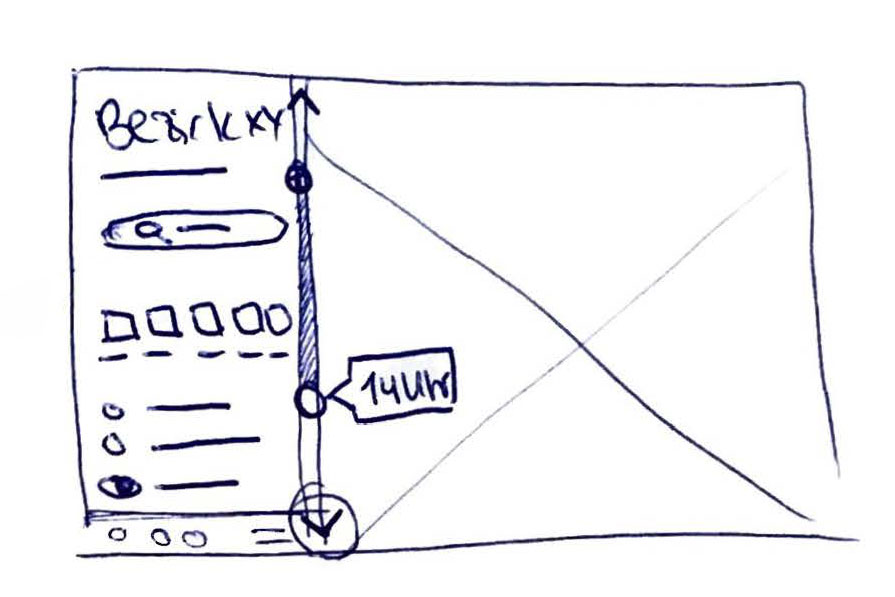 Bezirk XY
14 Uhr